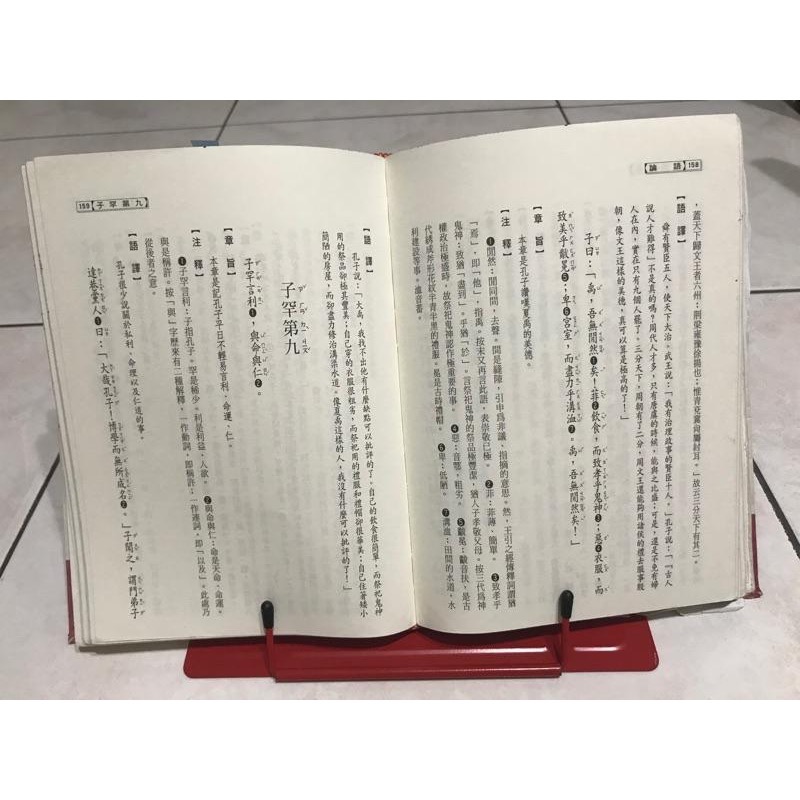 158【論語】
，蓋天下歸文王者六州：荆梁雍豫徐揚也；惟青兗冀尚屬紂耳。」故云三分天下有其二。
【語譯】
舜有賢臣五人，使天下大治。武王說：「我有治理政事的賢臣十人。」孔子說：「『古人
說人才難得』不是真的嗎？周代人才多，只有唐虞的時候，能與之比盛；可是，還是不免有婦
人在內，實在只有九個人罷了。三分天下，周朝有了二分，周文王還能夠用諸侯的禮去服事殷
朝，像文王這樣的美德，真可以算是極高的了！」
子曰：「禹，吾無閒然❶矣！菲❷飲食，而致孝乎鬼神❸；惡❹衣服，而
致美乎黻冕❺；卑❻宮室，而盡力乎溝洫❼。禹，吾無閒然矣！」
【章旨】
本章是孔子讚嘆夏禹的美德。
【注釋】
❶閒然：閒同間，去聲。間是縫隙，引申爲非議、指摘的意思。然，王引之經傳釋詞謂猶
「焉」，即「他」，指禹。按末又再言此語，表崇敬已極。　❷菲：菲薄、簡單。　❸致孝乎
鬼神：致猶「盡到」。乎猶「於」。言祭祀鬼神的祭品極豐潔，猶人子孝敬父母。按三代爲神
權政治極盛時，故祭祀鬼神認作極重要的事。　❹惡：音鄂，粗劣。　❺黻冕：黻音扶，是古
代綉成斧形花紋半青半黑的禮服。冕是古時禮帽。　❻卑：低陋。　❼溝洫：田間的水道，水
利建設等事。洫音蓄。
159【子罕第九】
【語譯】
孔子說：「大禹，我找不出他有什麼缺點可以批評的了。自己的飲食很簡單，而祭祀鬼神
用的祭品卻極其豐美；自己穿的衣服很粗劣，而祭祀用的禮服和禮帽卻很華美；自己住著矮小
簡陋的房屋，而卻盡力修治溝渠水道。像夏禹這樣的人，我沒有什麼可以批評的了！」
子罕第九
子罕言利❶，與命與仁❷。
【章旨】
本章是記孔子平日不輕易言利、命運、仁。
【注釋】
❶子罕言利：子指孔子。罕是極少。利是利益、人欲。　❷與命與仁：命是天命、命運。
與是稱許。按「與」字歷來有二種解釋，一作動詞，即稱許；一作連詞，即「以及」。此處乃
從後者之意。
【語譯】
孔子很少說關於私利、命理以及仁道的事。
達巷黨人❶曰：「大哉孔子！博學而無所成名❷。」子聞之，謂門弟子